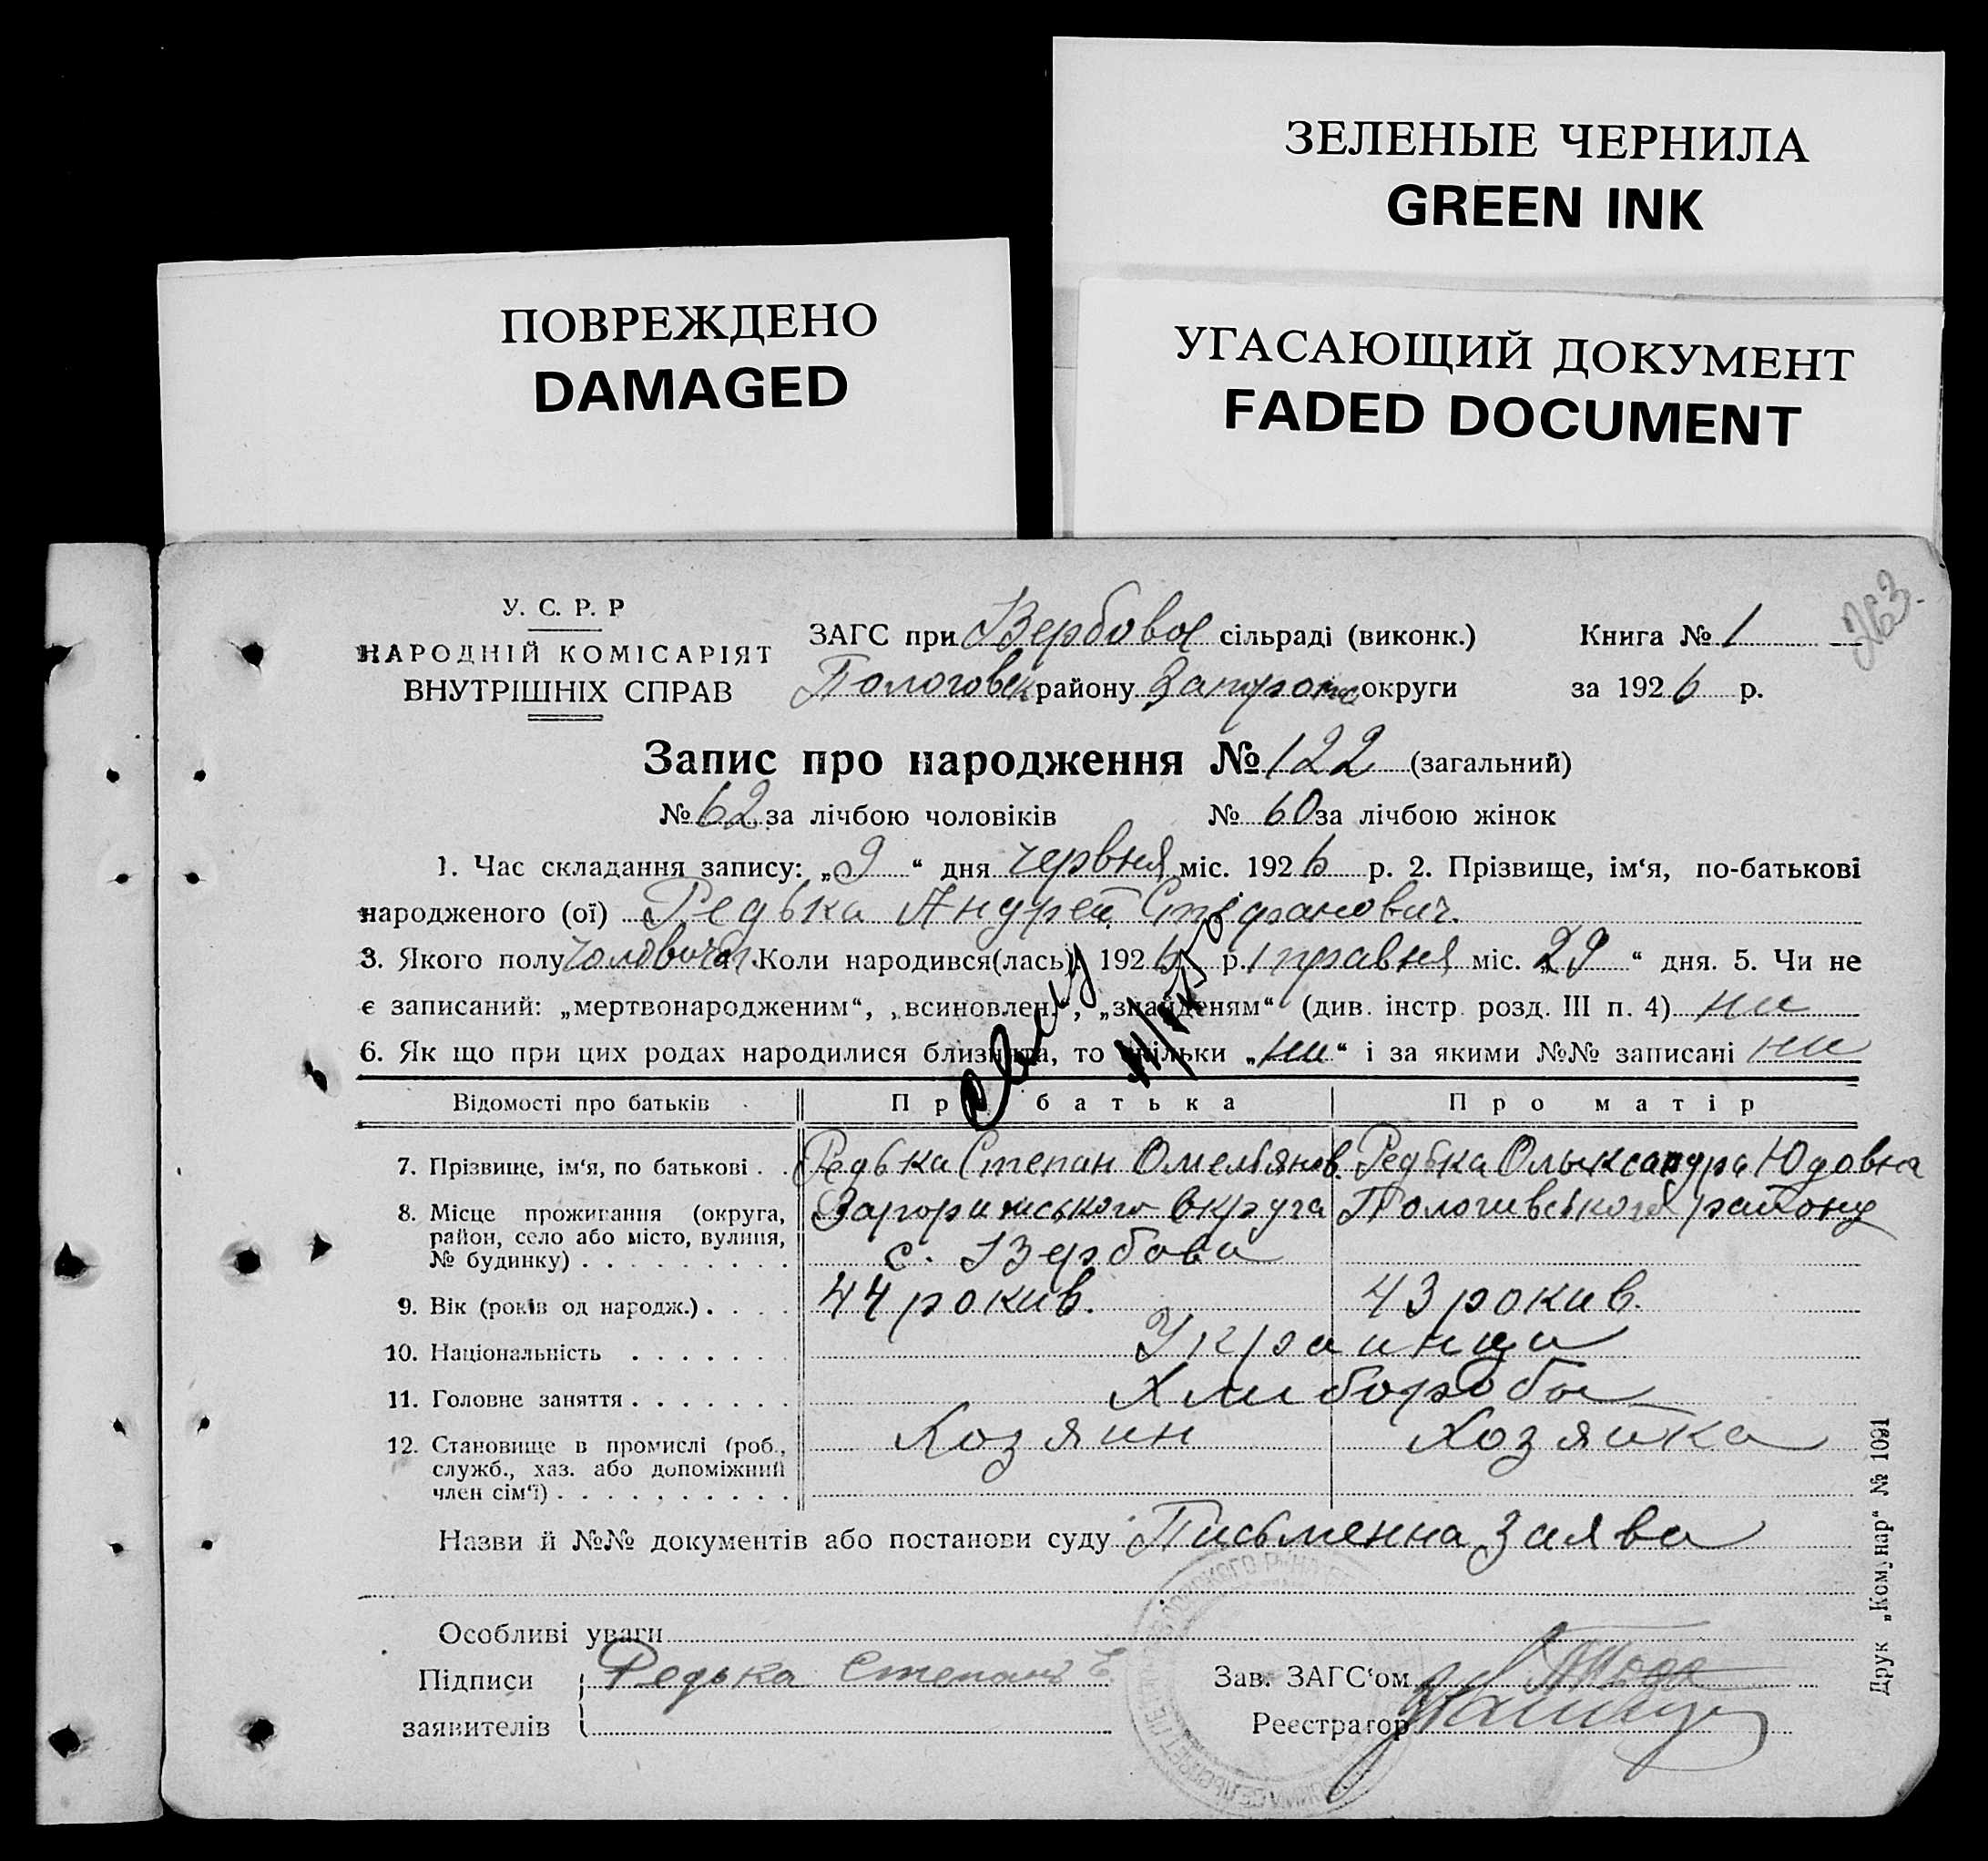 ЗЕЛЕНЫЕ ЧЕРНИЛА
GREEN INK
ПОВРЕЖДЕНО
DAMAGED
УГАСАЮЩИЙ ДОКУМЕНТ
FADED DOCUMENT
263
У. С. Р. Р
НАРОДНІЙ КОМІСАРІЯТ
ВНУТРІШНІХ СПРАВ
ЗАГС при Вербовое сільраді (виконк.) Книга № 1
Пологовск району округи за 1926 р.
Запис про народження № 122 (загальний)
№ 62 за лічбою чоловіків № 60 за лічбою жінок
1. Час складання запису: „9“ дня червня міс. 1926 р. 2. Прізвище, ім‘я, по-батькові
народженого (ої) Редька Андрей Стефанович.
3. Якого полу Коли народився(лась) 1926 р. травня міс. „29“ дня. 5. Чи не
є записаний: „мертвонародженим“, „всиновлен.“, „знайденям“ (див. інстр. розд. III п. 4) ни
6. Як що при цих родах народилися близнята, то скільки „ни“ і за якими №№ записані ни
Відомості про батьків Про батька Про матір
7. Прізвище, ім‘я, по батькові . . Редька Степан Омельянов. Редька Олыксандра Юдовна
8. Місце проживання (округа, район, село або місто, вулиця, № будинку) . . . . . . . . . Запорижського Округа Пологивського району
с. Вербова
9. Вік (років од народж.) . . . . 44 рокив. 43 рокив.
10. Національність . . . . . . . Украинци
11. Головне заняття . . . . . . . Хлиборобы
12. Становище в промислі (роб., служб., хаз. або допоміжний член сім‘ї) . . . . . . . . . . Хозяин Хозяйка
Назви й №№ документів або постанови суду Письменна заява
Особливі уваги
Підписи Редька Степан Зав. ЗАГС‘ом
заявителів Реєстратор
Друк „Комунар“ № 1091